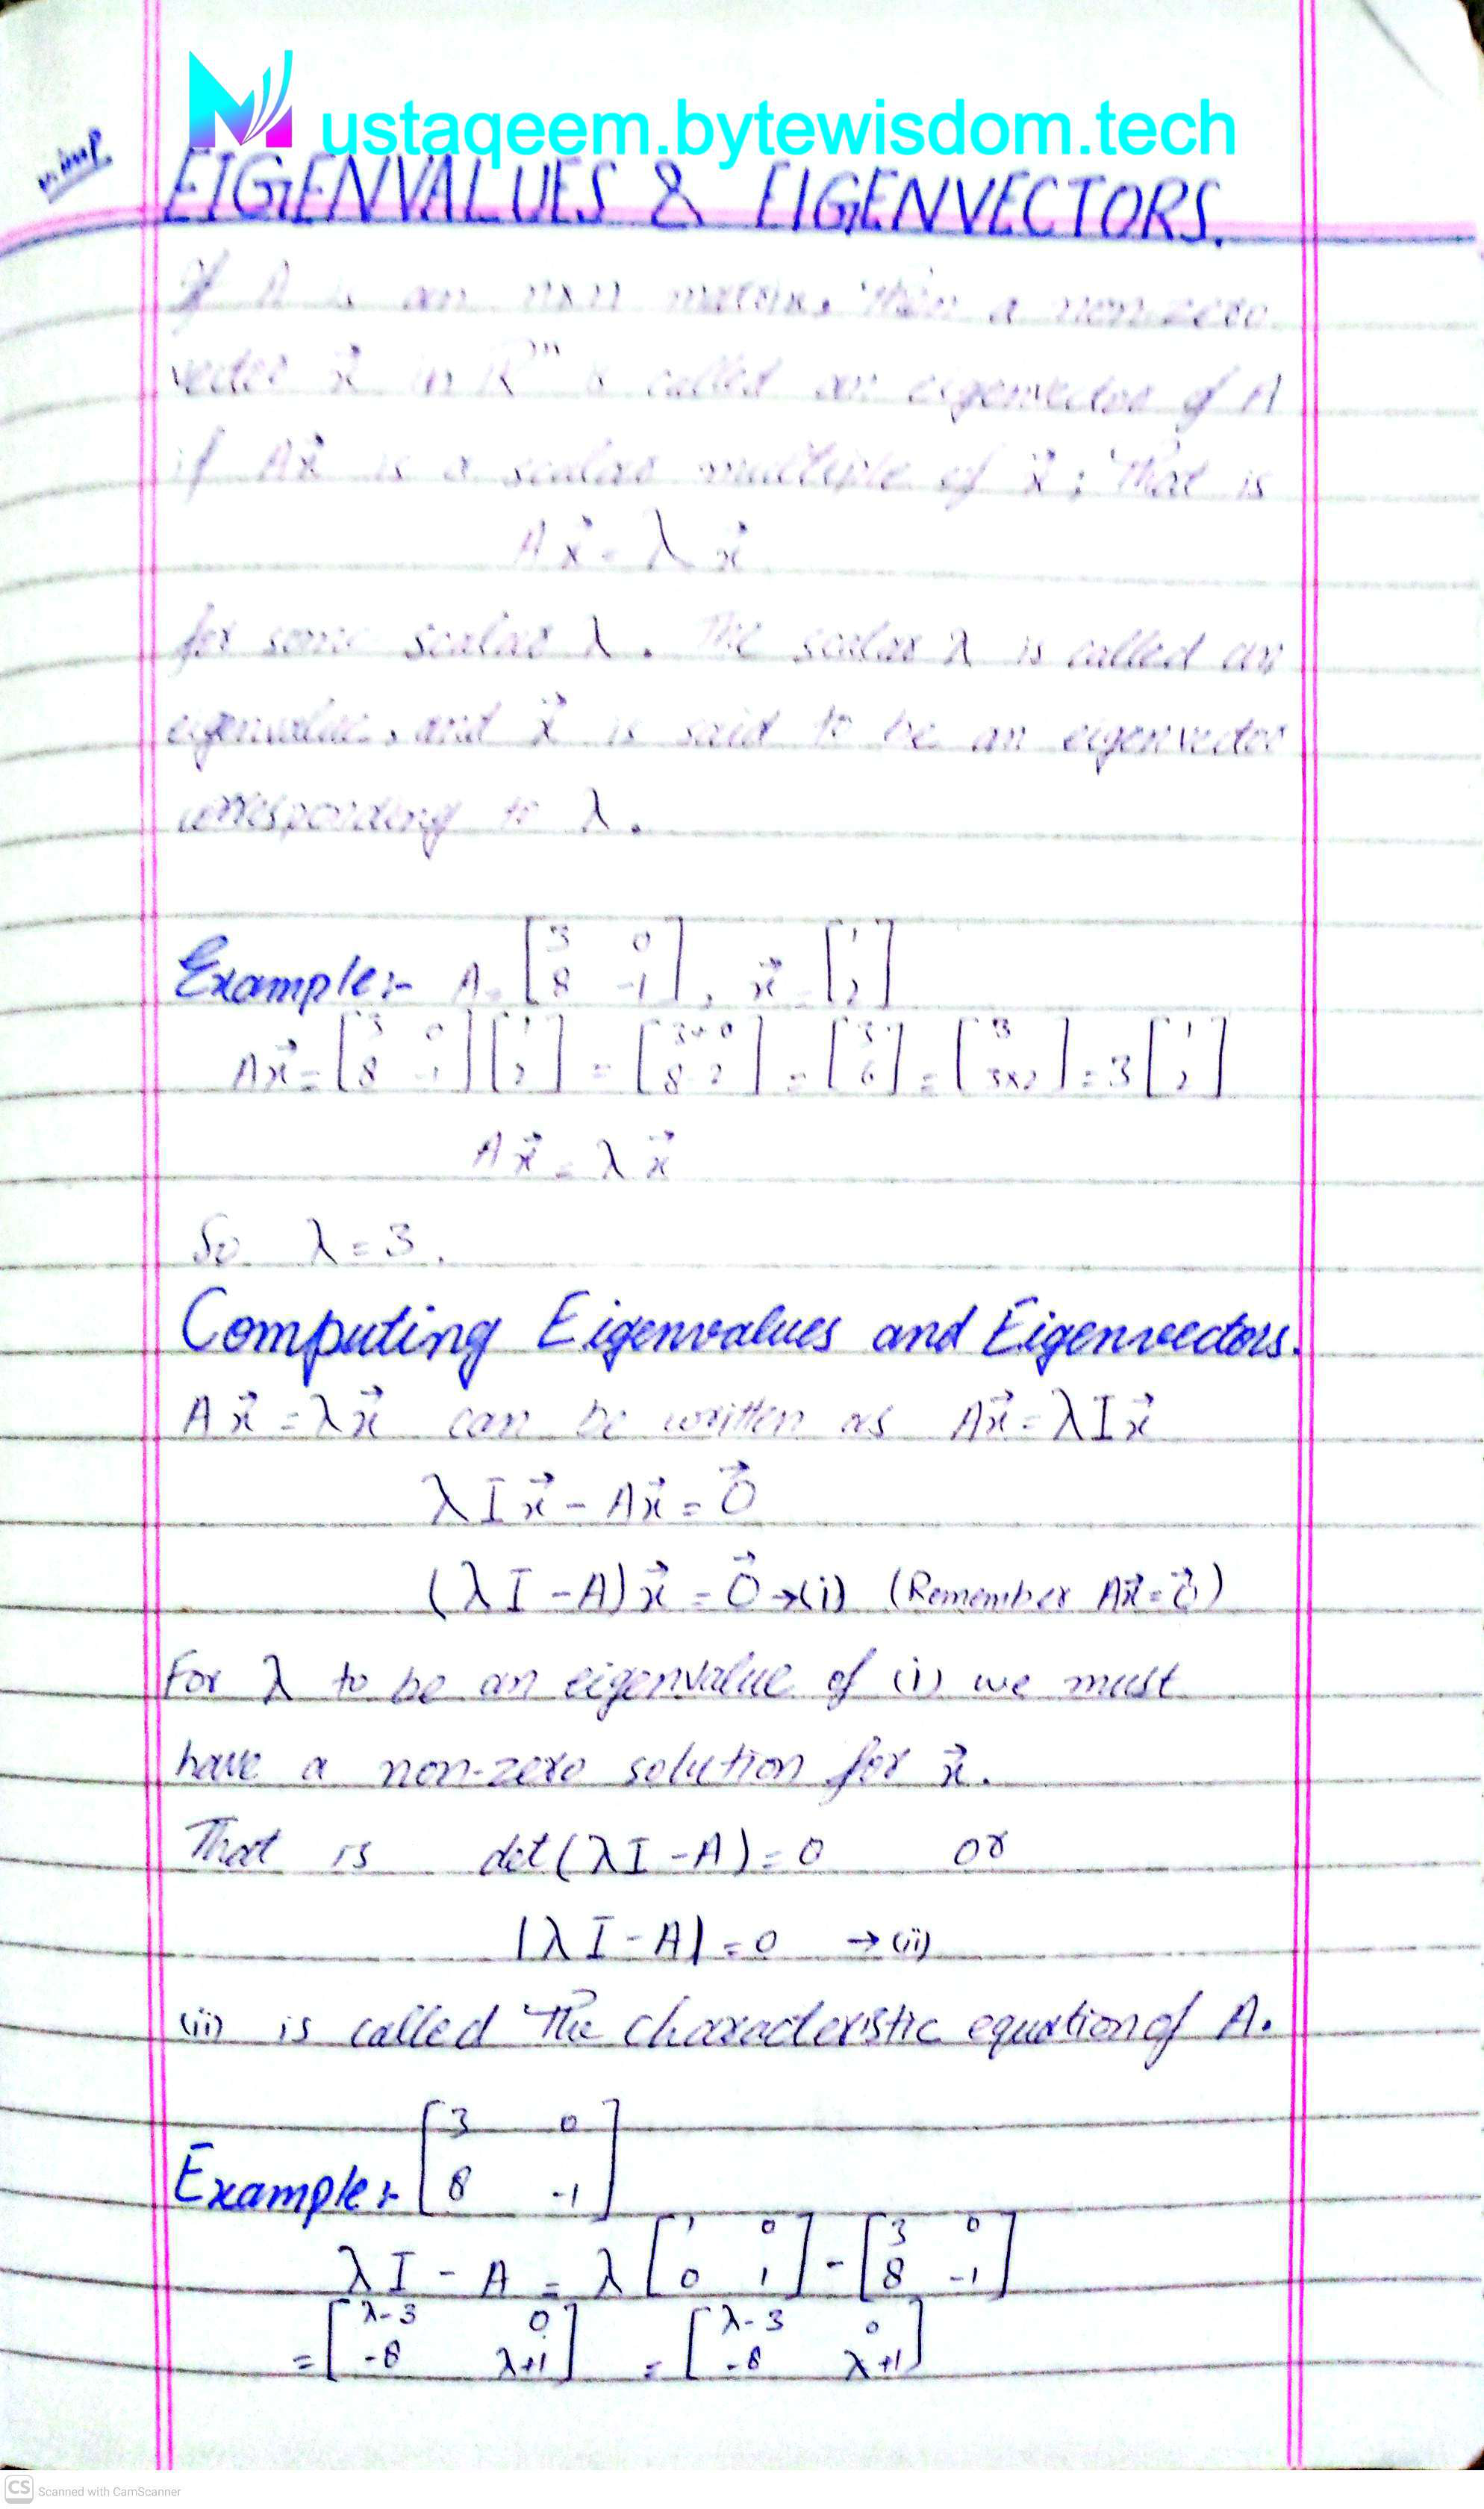 Mustaqeem.bytewisdom.tech
v.imp
EIGENVALUES & EIGENVECTORS.
If A is an nxn matrix, then a non-zero
vector x⃗ in Rⁿ is called an eigenvector of A
if Ax⃗ is a scalar multiple of x⃗; That is
Ax⃗ = λx⃗
for some scalar λ. The scalar λ is called an
eigenvalue, and x⃗ is said to be an eigenvector
corresponding to λ.
Example:- A = [3 0; 8 -1], x⃗ = [1; 2]
Ax⃗ = [3 0; 8 -1][1; 2] = [3+0; 8-2] = [3; 6] = [3; 3x2] = 3[1; 2]
Ax⃗ = λx⃗
So λ = 3.
Computing Eigenvalues and Eigenvectors.
Ax⃗ = λx⃗ can be written as Ax⃗ = λIx⃗
λIx⃗ - Ax⃗ = 0⃗
(λI - A)x⃗ = 0⃗ →(i) (Remember Ax⃗ = 0⃗)
For λ to be an eigenvalue of (i) we must
have a non-zero solution for x⃗.
That is det(λI - A) = 0 or
|λI - A| = 0 →(ii)
(ii) is called the characteristic equation of A.
Example:- [3 0; 8 -1]
λI - A = λ[1 0; 0 1] - [3 0; 8 -1]
= [λ-3 0; -8 λ+1] = [λ-3 0; -8 λ+1]
CS Scanned with CamScanner